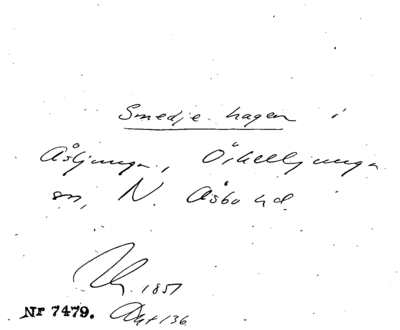 Smedje hagen i
Åsljunga, Örkelljunga
sn, N. Åsbo hd.
1857
Nr 7479. Akt 136